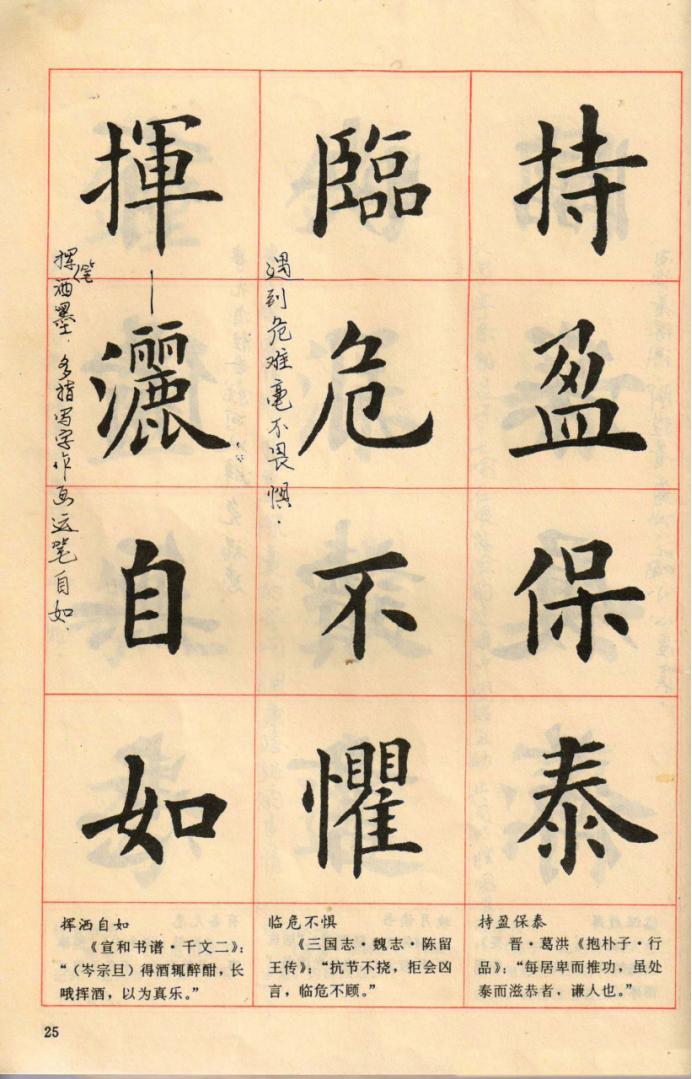 持盈保泰
臨危不懼
遇到危难毫不畏惧.
揮灑自如
挥笔洒墨.多指写字作画运笔自如.
挥洒自如
《宣和书谱·千文二》:
“(岑宗旦)得酒辄醉酣,长
哦挥洒,以为真乐。”
临危不惧
《三国志·魏志·陈留
王传》:“抗节不挠,拒会凶
言,临危不顾。”
持盈保泰
晋·葛洪《抱朴子·行
品》:“每居卑而推功,虽处
泰而滋恭者,谦人也。”
25